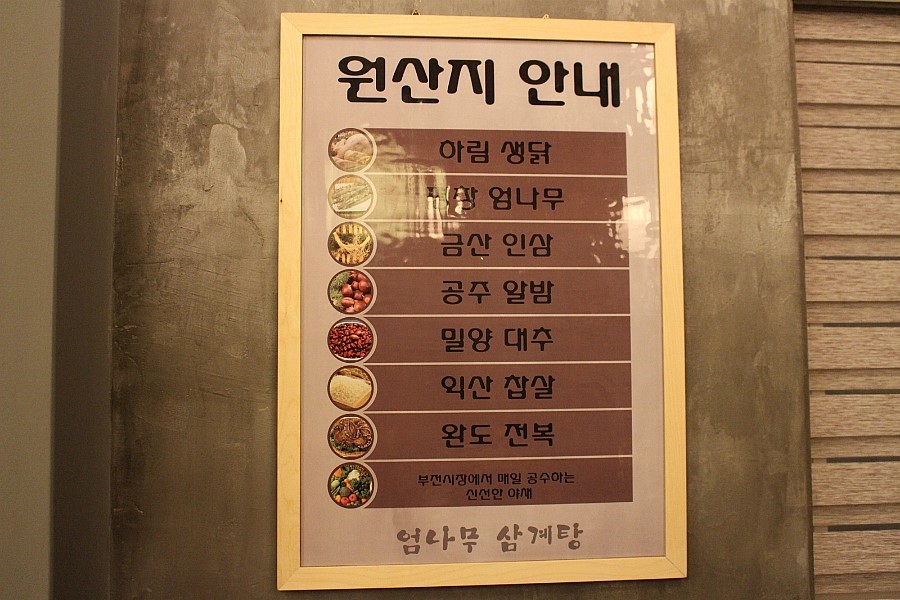 원산지 안내
하림 생닭
평창 엄나무
금산 인삼
공주 알밤
밀양 대추
익산 찹쌀
완도 전복
부전시장에서 매일 공수하는
신선한 야채
엄나무 삼계탕